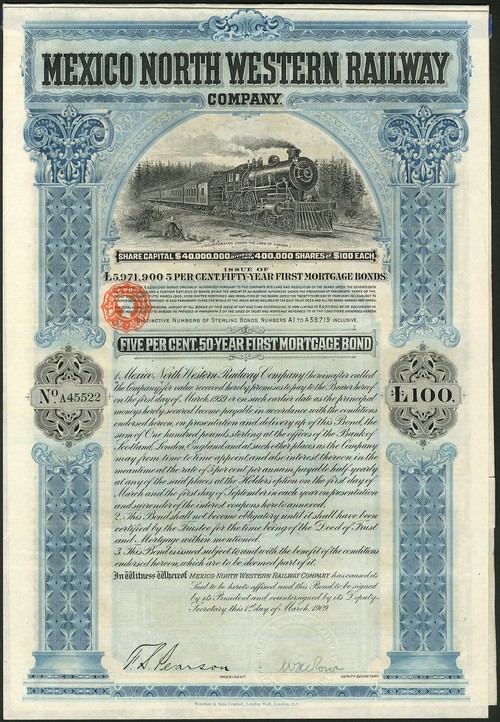 MEXICO NORTH WESTERN RAILWAY
COMPANY.
(INCORPORATED UNDER THE LAWS OF CANADA)
SHARE CAPITAL $40,000,000 400,000 SHARES OF $100 EACH.
ISSUE OF
£5,971,900 5 PER CENT. FIFTY-YEAR FIRST MORTGAGE BONDS
DISTINCTIVE NUMBERS OF STERLING BONDS, NUMBERS A1 TO A59,719 INCLUSIVE.
FIVE PER CENT. 50-YEAR FIRST MORTGAGE BOND
No. A45522
£100.
1. Mexico North Western Railway Company (hereinafter called
The Company), for value received hereby promises to pay to the Bearer hereof
on the first day of March, 1959 or on such earlier date as the principal
moneys hereby secured become payable in accordance with the conditions
endorsed hereon, on presentation and delivery up of this Bond, the
sum of One hundred pounds sterling at the offices of the Bank of
Scotland, London, England, and at such other places as the Company
may from time to time appoint, and also interest thereon in the
meantime at the rate of 5 per cent per annum, payable half yearly
at any of the said places at the Holders option on the first day of
March and the first day of September in each year on presentation
and surrender of the interest coupons hereto annexed.
2. This Bond shall not become obligatory until it shall have been
certified by the Trustee for the time being of the Deed of Trust
and Mortgage within mentioned.
3. This Bond is issued subject to and with the benefit of the conditions
endorsed hereon, which are to be deemed part of it.
In Witness Whereof MEXICO NORTH WESTERN RAILWAY COMPANY has caused its
Seal to be hereto affixed and this Bond to be signed
by its President and countersigned by its Deputy-
Secretary this 1st day of March, 1909
F. S. Pearson
PRESIDENT.
DEPUTY SECRETARY.
Waterlow & Sons Limited, London Wall, London, E.C.